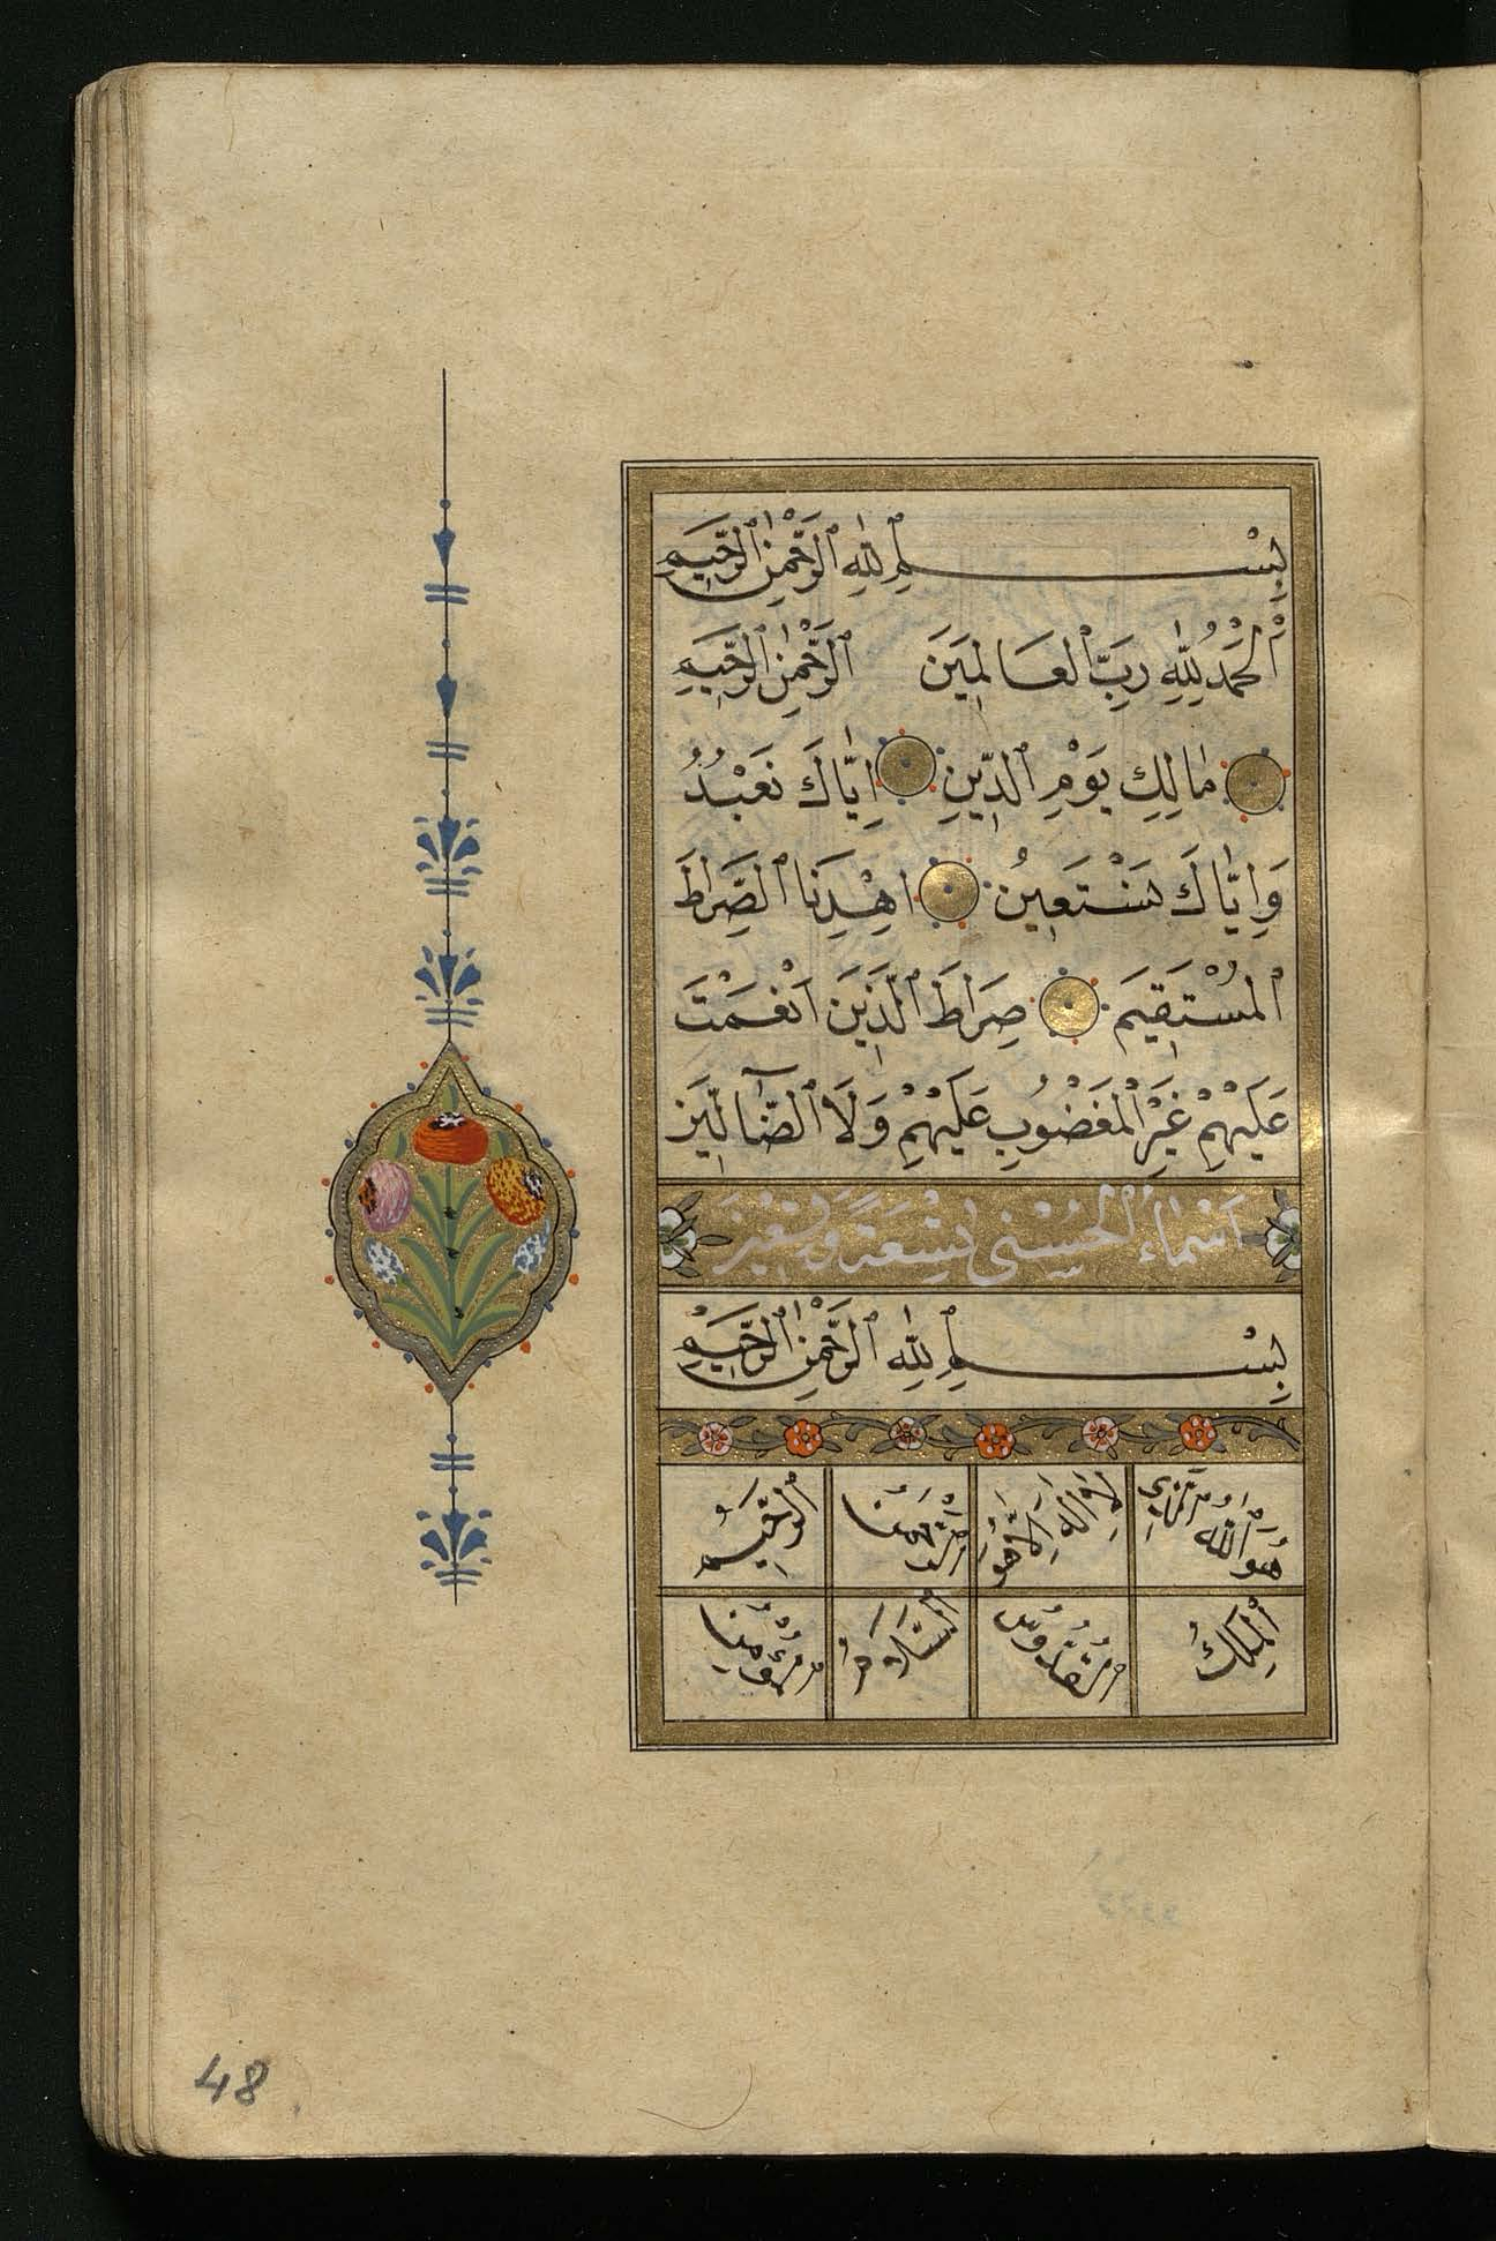 بِسْمِ اللّٰهِ الرَّحْمٰنِ الرَّحِيمِ
اَلْحَمْدُ لِلّٰهِ رَبِّ الْعَالَمِينَ الرَّحْمٰنِ الرَّحِيمِ
مَالِكِ يَوْمِ الدِّينِ اِيَّاكَ نَعْبُدُ
وَاِيَّاكَ نَسْتَعِينُ اهْدِنَا الصِّرَاطَ
الْمُسْتَقِيمَ صِرَاطَ الَّذِينَ اَنْعَمْتَ
عَلَيْهِمْ غَيْرِ الْمَغْضُوبِ عَلَيْهِمْ وَلَا الضَّٓالِّينَ
اَسْمَاءُ الْحُسْنٰى تِسْعَةً وَتِسْعِينَ
بِسْمِ اللّٰهِ الرَّحْمٰنِ الرَّحِيمِ
هُوَ اللّٰهُ الَّذِي
لَا اِلٰهَ اِلَّا هُوَ
الرَّحْمٰنُ
الرَّحِيمُ
الْمَلِكُ
الْقُدُّوسُ
السَّلَامُ
الْمُؤْمِنُ
48